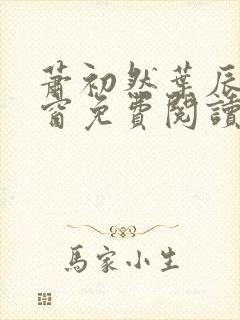 蕭初然葉辰
窗免費閱讀
馬家小生